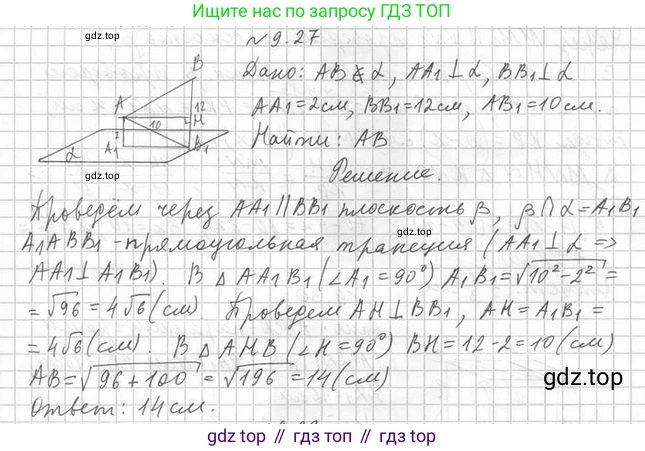 Ищите нас по запросу ГДЗ ТОП
№ 9.27
gdz.top
Дано: AB ⊄ α, AA₁ ⊥ α, BB₁ ⊥ α
AA₁ = 2см, BB₁ = 12см, AB₁ = 10см.
Найти: AB
B
A
12
H
10
2
A₁
B₁
α
gdz.top
Решение.
Проведём через AA₁ || BB₁ плоскость β, β ∩ α = A₁B₁
A₁ABB₁ - прямоугольная трапеция (AA₁ ⊥ α =>
AA₁ ⊥ A₁B₁). В △ AA₁B₁ (∠A₁ = 90°) A₁B₁ = √10² - 2² =
= √96 = 4√6 (см). Проведем AH ⊥ BB₁, AH = A₁B₁ =
= 4√6 (см). В △ AHB (∠H = 90°) BH = 12 - 2 = 10 (см)
AB = √96 + 100 = √196 = 14 (см)
gdz.top
Ответ: 14 см.
gdz.top // гдз.топ // gdz.top